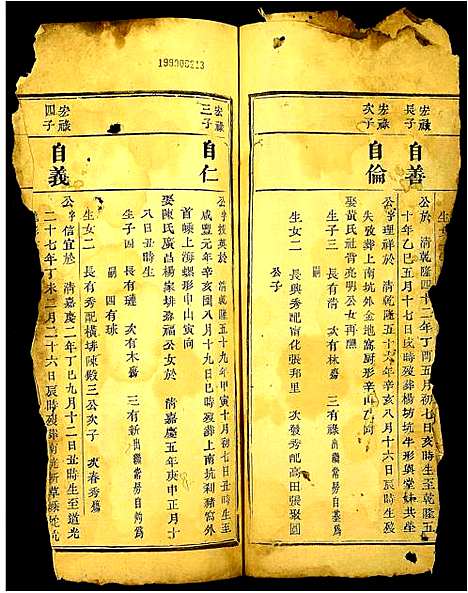 199000213
宏祿
長子
自善
公於 清乾隆四十二年丁酉五月初七日亥時生至乾隆五
十年乙巳五月十七日亥時歿葬楊坊坑牛形與堂 共坐
宏祿
次子
自倫
公字理祥於 清乾隆五十六年辛亥八月十六日辰時生
失攷葬上南坑外金地窩厨形辛山乙向
娶黃氏社背亮明公女再醮
生子三 長有淸 次有林 三有祿出繼常房自基爲
公子
生女二 長興秀配甯化張邦里 次發秀配高田張聚圓
宏祿
三子
自仁
公字 英於 清乾隆五十九年甲寅十月初七日丑時生至
咸豐元年辛亥閏八月十九日巳時歿葬上南坑利豬窩外
首嵊上海螺形申山寅向
娶陳氏廣昌楊家排 福公女於 清嘉慶五年庚申正月十
八日丑時生
生子四 長有璉 次有木 三有新出繼常房自 爲
嗣 四有球
生女二 長有秀配橫排陳殿三公次子 次春秀
宏祿
四子
自義
公字信宜於 清嘉慶二年丁巳九月十二日丑時生至道光
二十七年丁未二月二十六日辰時歿葬南坑新草